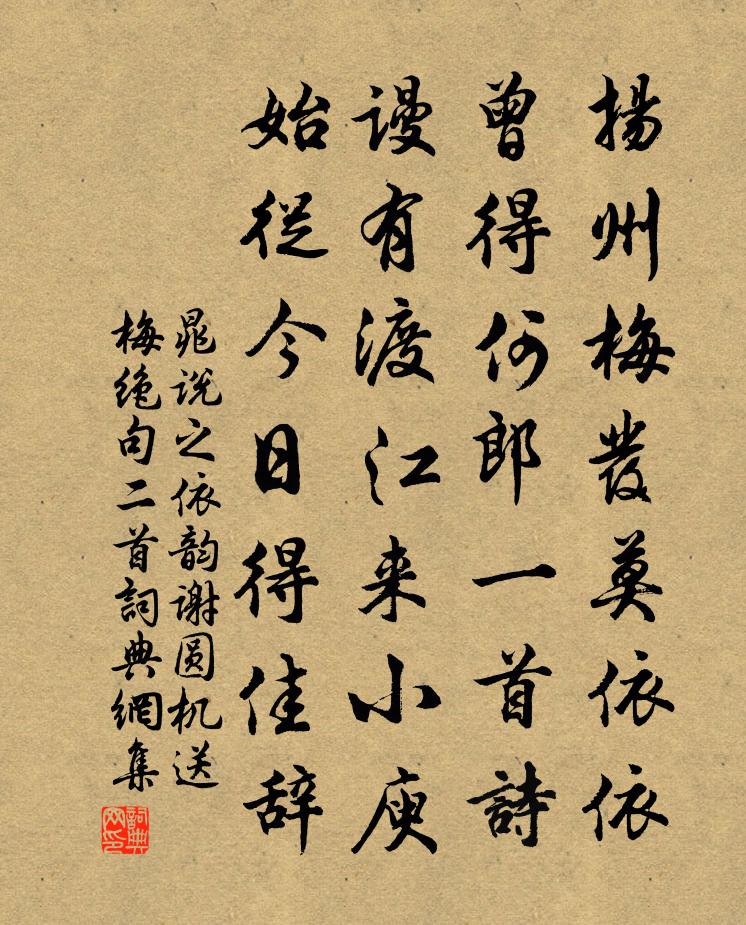 揚州梅發莫依依
曾得何郎一首詩
謾有渡江来小庾
始從今日得佳辞
晁说之依韵谢圆机送
梅绝句二首詞典網集
詞典网印